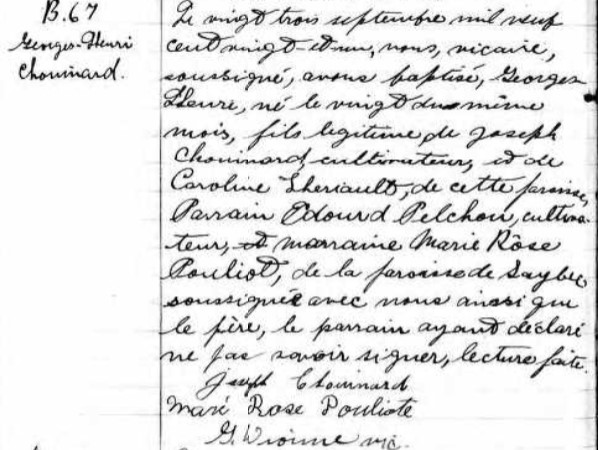 B.67
Georges-Henri
Chouinard.
Le vingt trois septembre mil neuf
cent vingt-et-un, nous, vicaire,
soussigné, avons baptisé, Georges-
Henri, né le vingt du même
mois, fils legitime, de Joseph
Chouinard, cultivateur, et de
Caroline Theriault, de cette paroisse,
Parrain Edourd Pelchon, cultiva-
teur, et marraine Marie Rôse
Pouliot, de la paroisse de Saybec,
soussignée avec nous ainsi que
le père, le parrain ayant déclaré
ne pas savoir signer, lecture faite.
Joseph Chouinard
Marie Rose Pouliote
vic.